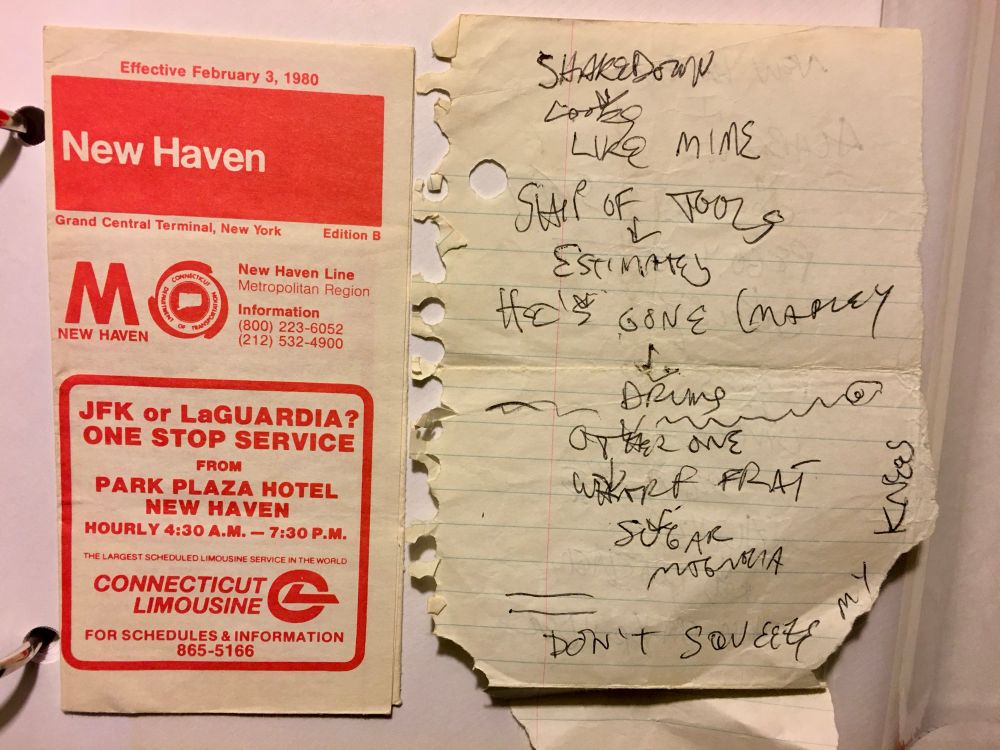 Effective February 3, 1980
New Haven
Grand Central Terminal, New York Edition B
M
NEW HAVEN
CONNECTICUT
DEPARTMENT OF TRANSPORTATION
New Haven Line
Metropolitan Region
Information
(800) 223-6052
(212) 532-4900
JFK or LaGUARDIA?
ONE STOP SERVICE
FROM
PARK PLAZA HOTEL
NEW HAVEN
HOURLY 4:30 A.M. — 7:30 P.M.
THE LARGEST SCHEDULED LIMOUSINE SERVICE IN THE WORLD
CONNECTICUT
LIMOUSINE
FOR SCHEDULES & INFORMATION
865-5166
SHAKEDOWN
LOOKS
LIKE MINE
SHIP OF FOOLS
ESTIMATED
HE'S GONE (MARLEY
DRUMS
OTHER ONE
WHARF RAT
SUGAR
MAGNOLIA
DON'T SQUEEZE
MY
KNEES